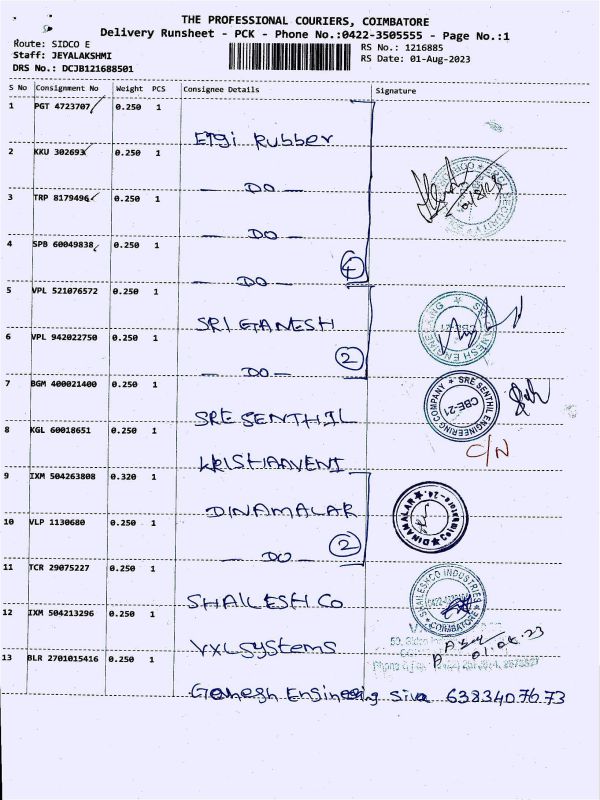 THE PROFESSIONAL COURIERS, COIMBATORE
Delivery Runsheet - PCK - Phone No.:0422-3505555 - Page No.:1
Route: SIDCO E
Staff: JEYALAKSHMI
DRS No.: DCJB121688501
RS No.: 1216885
RS Date: 01-Aug-2023
S No Consignment No Weight PCS Consignee Details Signature
1 PGT 4723707 0.250 1 Elgi Rubber
2 KKU 302693 0.250 1 — DO —
3 TRP 8179496 0.250 1 — DO —
4 SPB 60049838 0.250 1 — DO — 4
5 VPL 521076572 0.250 1 SRI GANESH
6 VPL 942022750 0.250 1 — DO — 2
7 BGM 400021400 0.250 1 SRE SENTHIL
SRE SENTHIL ENGINEERING COMPANY
CBE-21
8 KGL 60018651 0.250 1 KRISHANVENI C/N
9 IXM 504263808 0.320 1 DINAMALAR
DINAMALAR
10 VLP 1130680 0.250 1 — DO — 2
11 TCR 29075227 0.250 1 SHAILESH Co
SHAILESHCO INDUSTRIES
COIMBATORE
12 IXM 504213296 0.250 1 VXL Systems
01.08.23
13 BLR 2701015416 0.250 1 Ganesh Engineering Siva 6383407673